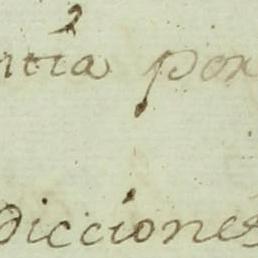 ntía por
dicciones